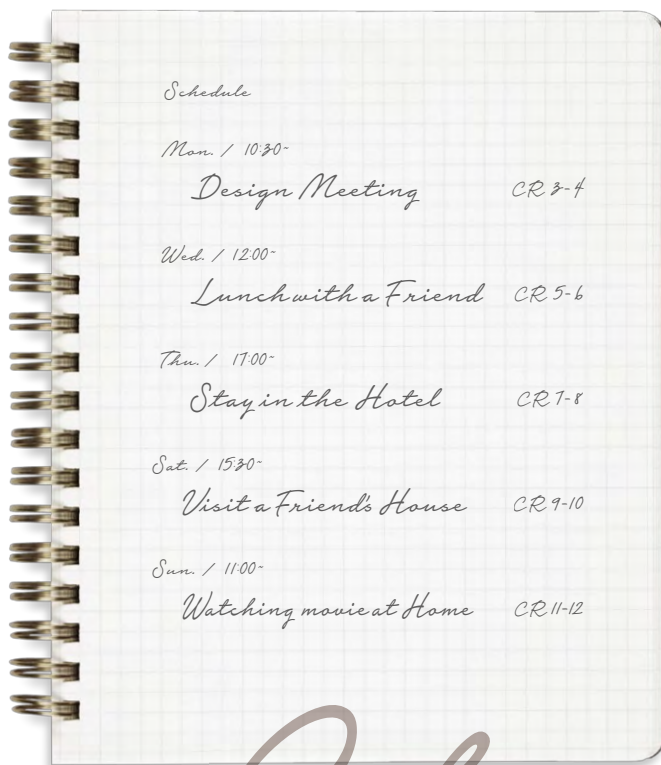 Schedule
Mon. / 10:30~
Design Meeting CR 3-4
Wed. / 12:00~
Lunch with a Friend CR 5-6
Thu. / 17:00~
Stay in the Hotel CR 7-8
Sat. / 15:30~
Visit a Friend's House CR 9-10
Sun. / 11:00~
Watching movie at Home CR 11-12